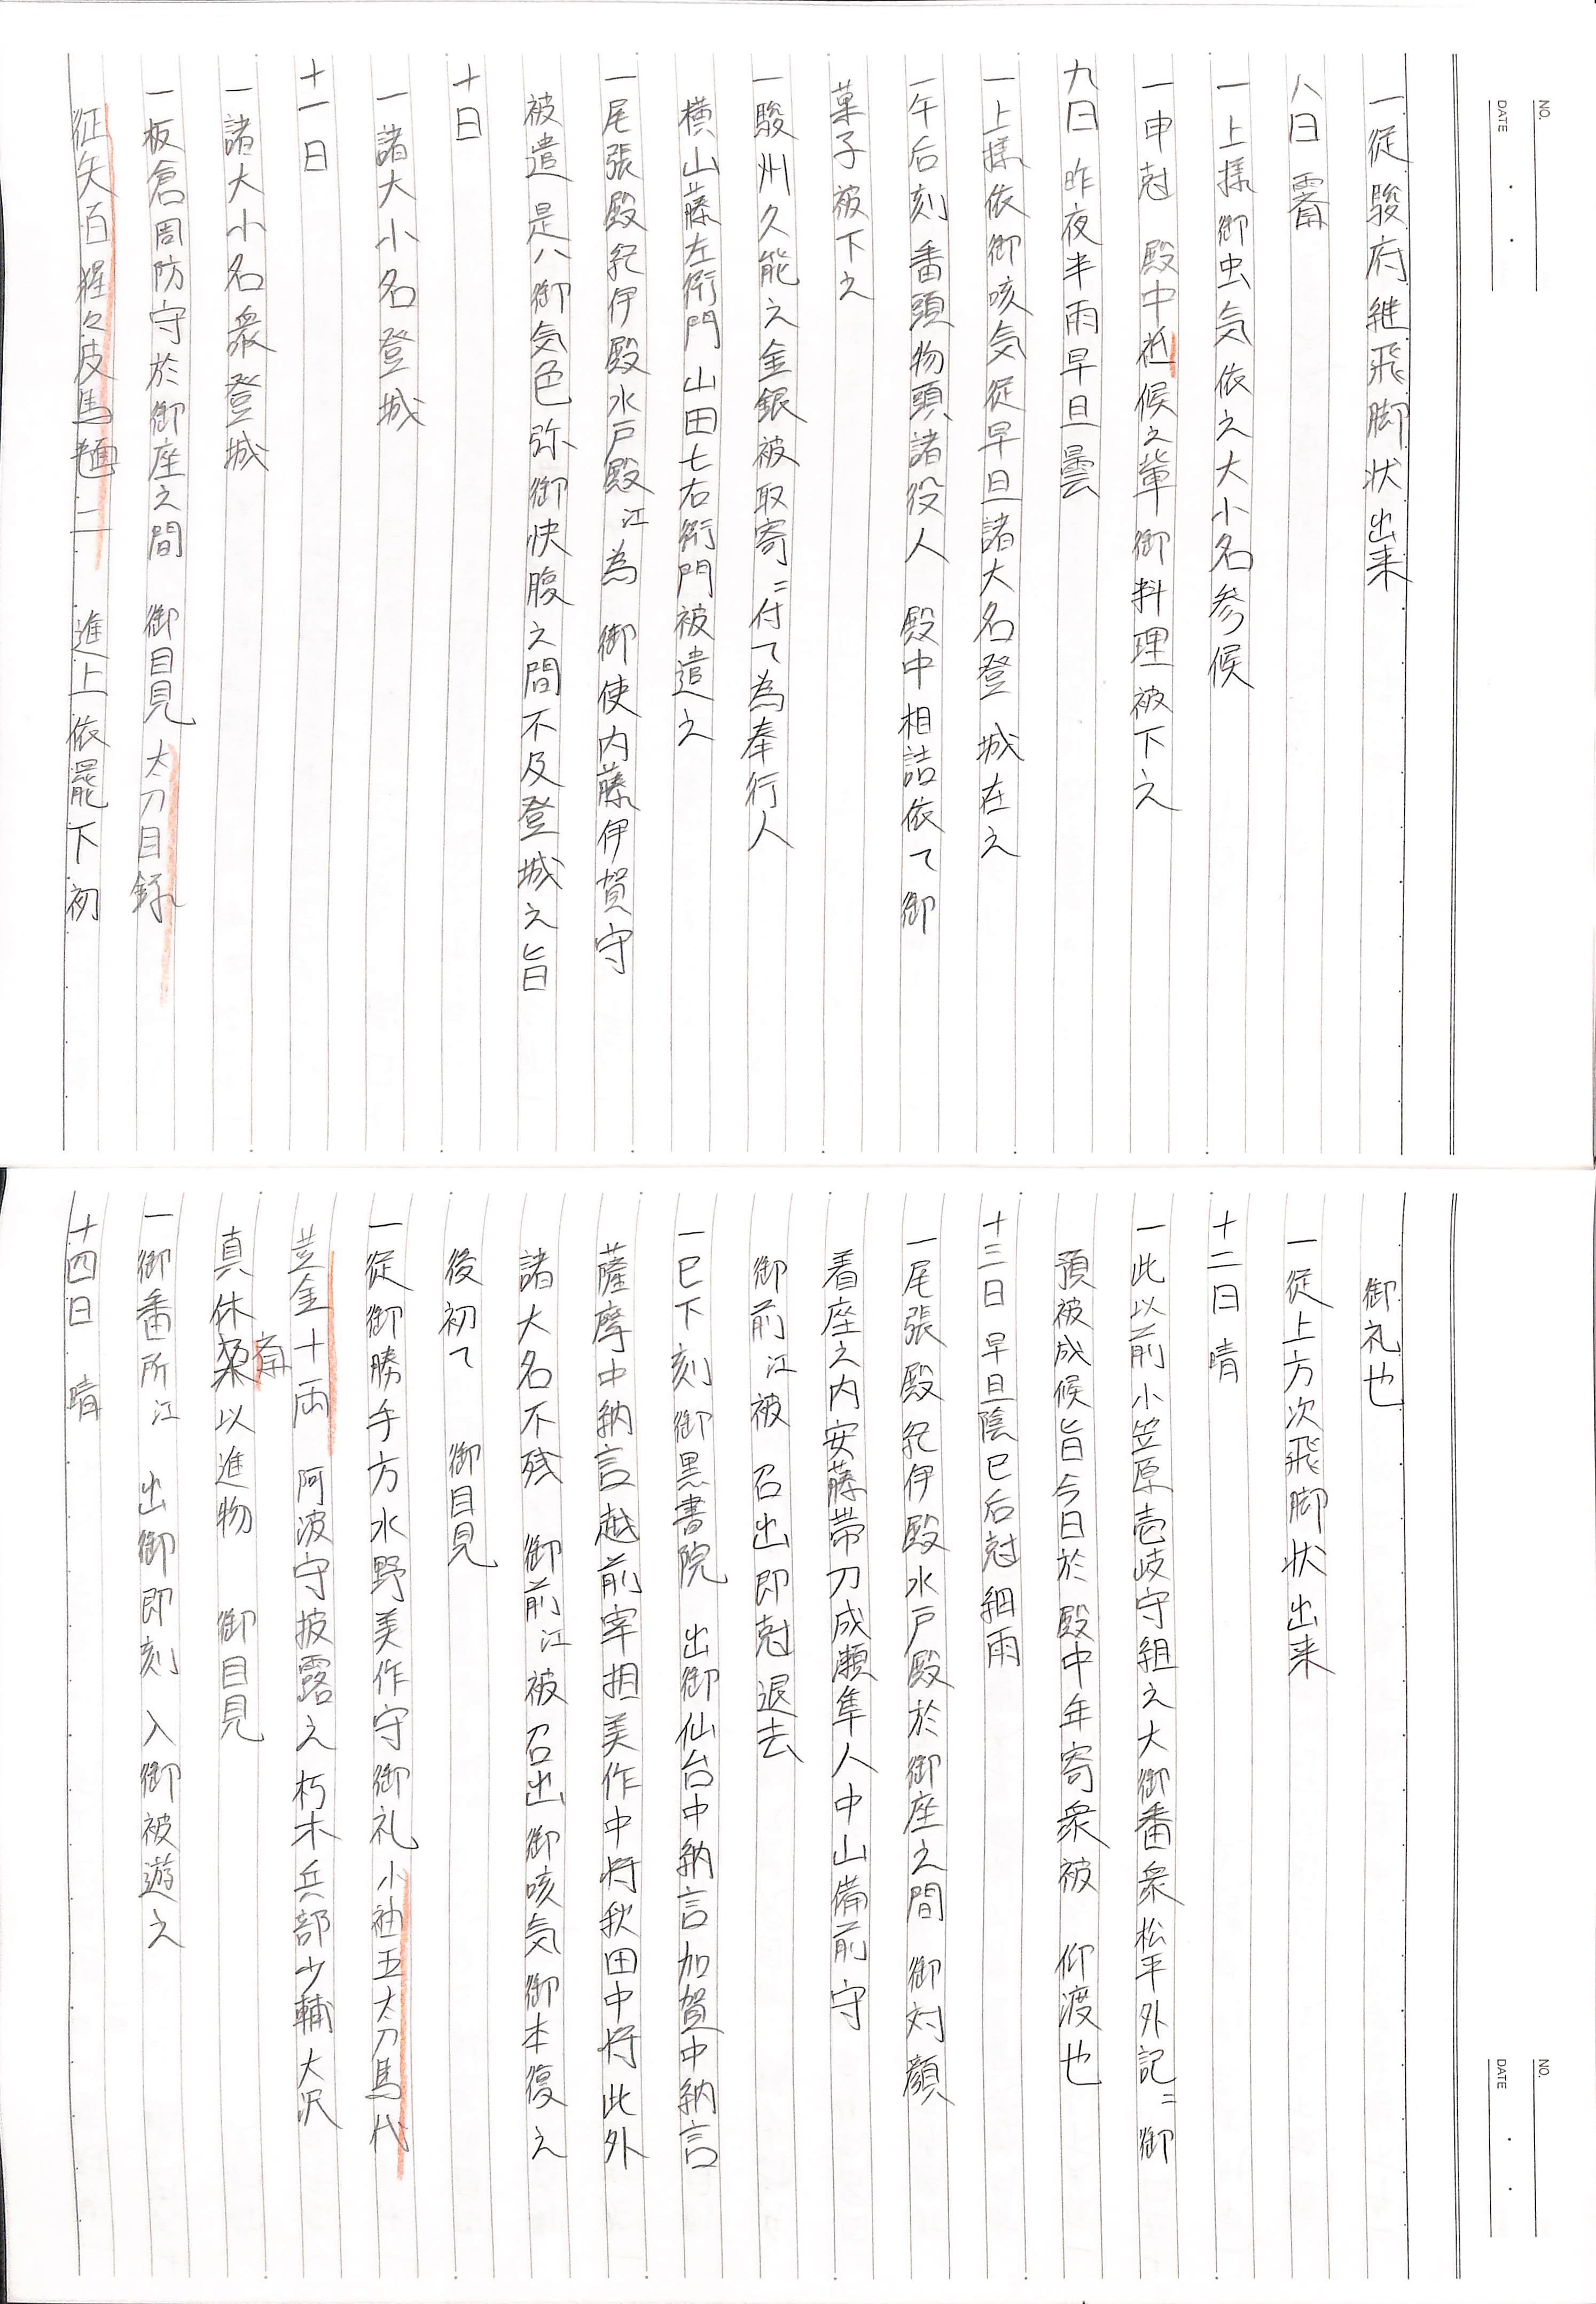 NO.
DATE
一従駿府継飛脚状出来
八日 霽
一上様御虫気依之大小名参候
一申尅 殿中祗候之輩御料理被下之
九日 昨夜半雨早旦曇
一上様依御咳気従早旦諸大名登 城在之
一午后刻番頭物頭諸役人 殿中相詰依て御
菓子被下之
一駿州久能之金銀被取寄ニ付て為奉行人
横山藤左衛門 山田七右衛門被遣之
一尾張殿紀伊殿水戸殿江為 御使内藤伊賀守
被遣 是ハ御気色弥御快腹之間不及登城之旨
十日
一諸大小名登城
十一日
一諸大小名衆登城
一板倉周防守於御座之間 御目見 太刀目録
征矢百 猩々皮馬麺二 進上依罷下初
NO.
DATE
御礼也
一従上方次飛脚状出来
十二日 晴
一此以前小笠原壱岐守組之大御番衆松平外記ニ御
預被成候旨今日於 殿中年寄衆被 仰渡也
十三日 早旦陰巳后尅細雨
一尾張殿紀伊殿水戸殿於御座之間 御対顔
着座之内安藤帯刀成瀬隼人中山備前守
御前江被 召出即尅退去
一巳下刻御黒書院 出御仙台中納言加賀中納言
薩摩中納言越前宰相美作中将秋田中将此外
諸大名不残 御前江被召出御咳気御本復之
後初て 御目見
一従御勝手方水野美作守御礼 小袖五太刀馬代
黄金十両 阿波守披露之朽木兵部少輔大沢
真休斎以進物 御目見
一御番所江 出御即刻 入御被遊之
十四日 晴